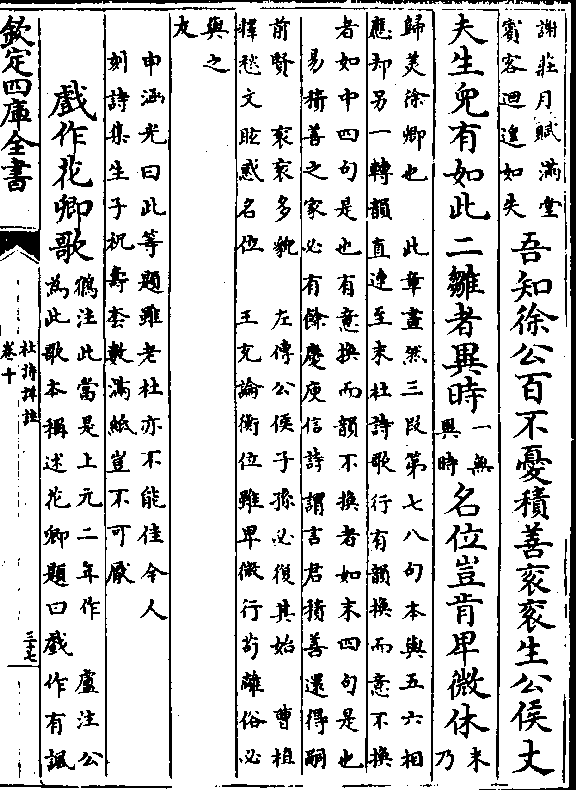 謝莊月賦滿堂
賓客迴遑如失
吾知徐公百不憂積善衮衮生公侯丈
夫生兒有如此二雛者異時一無異時名位豈肯卑微休末乃
歸美徐卿也　此章畫然三段第七八句本與五六相
應却另一轉韻直連至末杜詩歌行有韻換而意不換
者如中四句是也有意換而韻不換者如末四句是也
易積善之家必有餘慶庾信詩謂言君積善還得嗣
前賢　衮衮多貌　左傳公侯子孫必復其始　曹植
釋愁文眩惑名位　王充論衡位雖卑微行苟離俗必
與之
友
申涵光曰此等題雖老杜亦不能佳今人
刻詩集生子祝壽套數滿紙豈不可厭
戲作花卿歌
鶴注此當是上元二年作　盧注公
為此歌本稱述花卿題曰戲作有諷
欽定四庫全書
杜詩詳註
卷十
三七